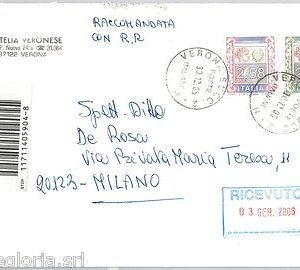 TELIA VERONESE
P. Nuovo 24/a ☎ 31.384
37122 VERONA
RACCOMANDATA
CON R.R
VERONA
2,58
ITALIA
11711405904-8
Spett. Ditta
De Rosa
Via Privata Maria Teresa, 11
20123 - MILANO
RICEVUTO
03 GEN. 2006
egloria.srl